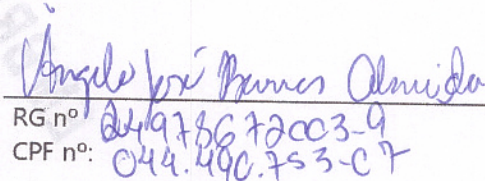 Angelo José Barros Almeida
RG nº 24978672003-9
CPF nº: 044.490.753-07